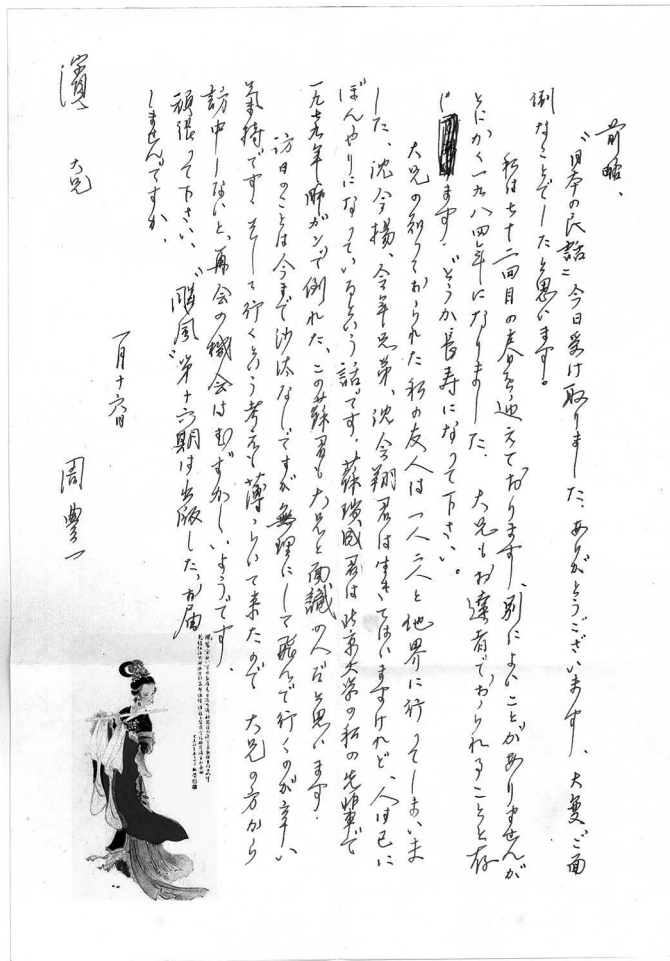 前略、
"日本の民話" 今日受け取りました、ありがとうございます、大変ご面
倒なことでしたと思います。
私は七十二回目の春を迎えております、別によいことがありませんが
とにかく一九八四年になりました、大兄もお達者でおられることと存
じます、どうか長寿になって下さい。
大兄の知っておられた私の友人は一人二人と他界に行ってしまいま
した、沈令揚、令年兄弟、沈令翔君は生きてはいますけれど、人は已に
ぼんやりになっているという話です、蘇瑞成君は北京大学の私の先輩で
一九七九年肺ガンで倒れた、この蘇君も大兄と面識の人だと思います.
訪日のことは今まで沙汰なしですが無理にして飛んで行くのが辛い
気持です、そして行くという考えも薄らいで来たので 大兄の方から
訪中しないと、再会の機会はむずかしいようです.
頑張って下さい、"颶風"第十六期は出版した、お届
しませんですか、
一月十六日 周豊一
濱 大兄